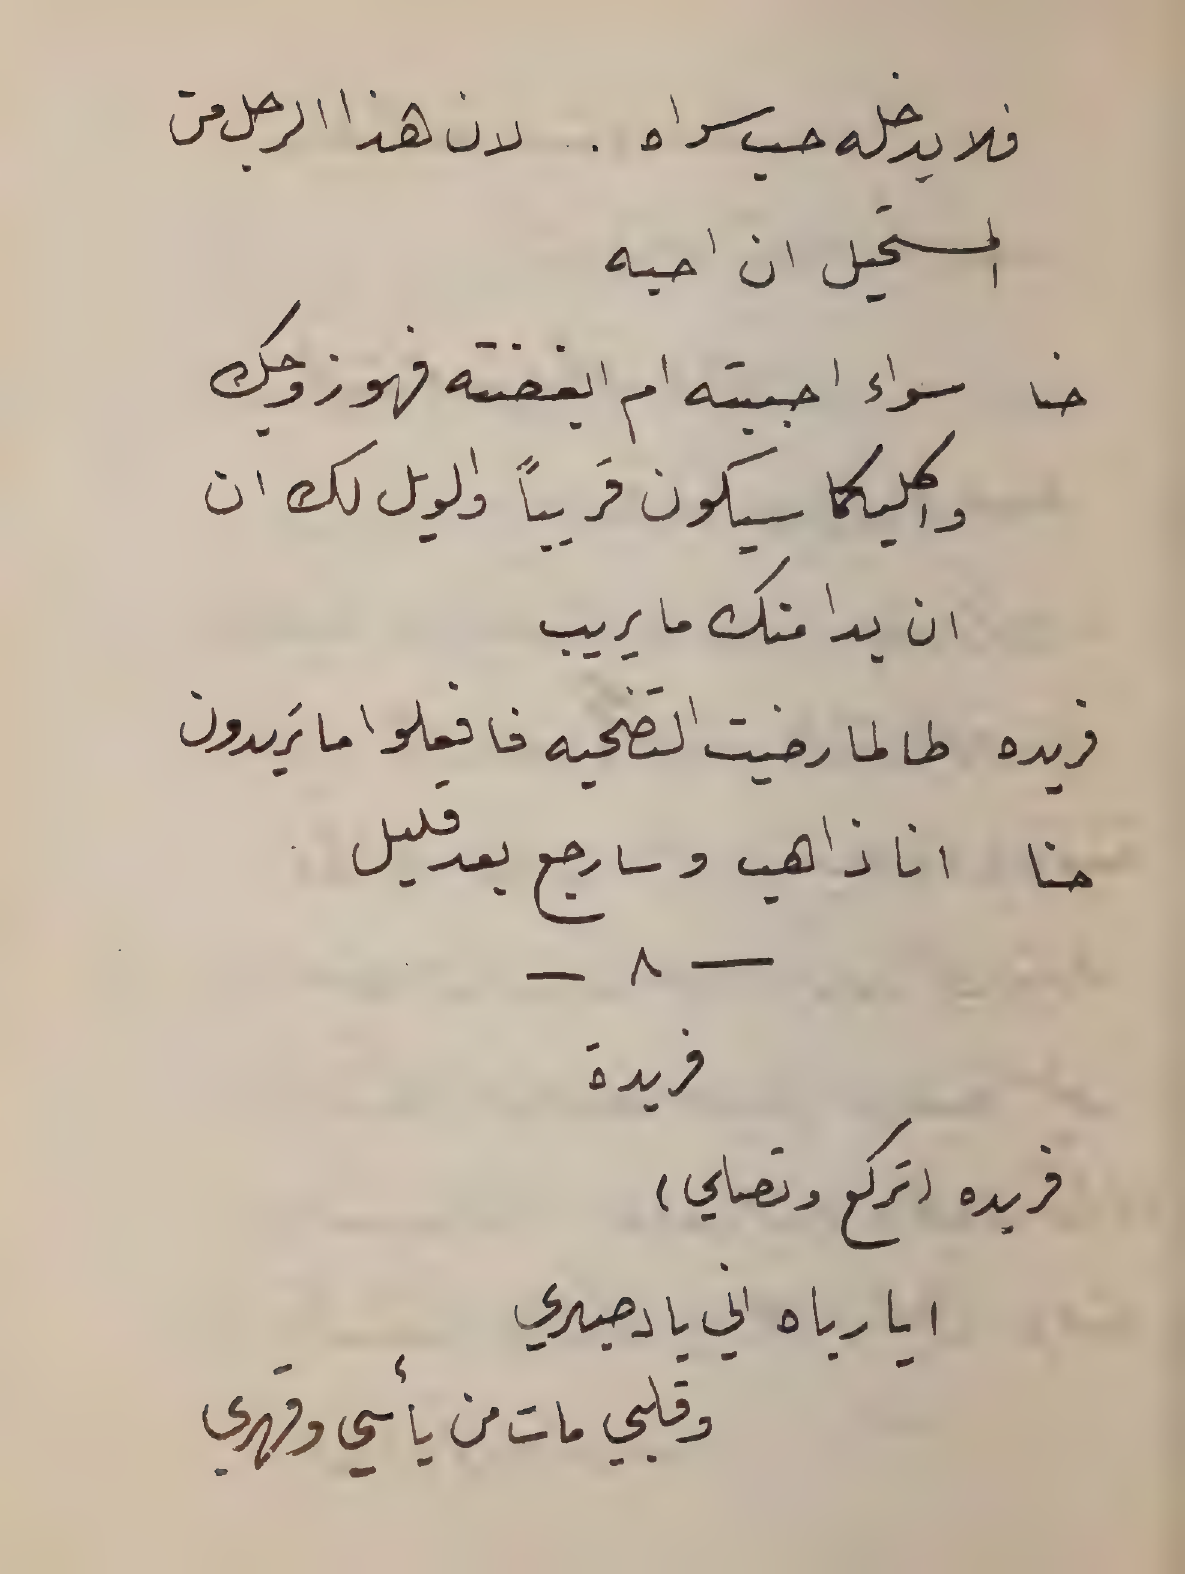 فلا يدخله حب سواه . لان هذا الرجل من
المستحيل ان احبه
حنا سواء احببته ام ابغضته فهو زوجك
واكليلكما سيكون قريباً والويل لك ان
ان بدا منك ما يريب
فريده طالما رضيت التضحيه فافعلوا ما تريدون
حنا انا ذاهب وسارجع بعد قليل
— ٨ —
فريدة
فريده (تركع وتصلي)
ايا رباه اني باد صبري
وقلبي مات من يأسي وقهري